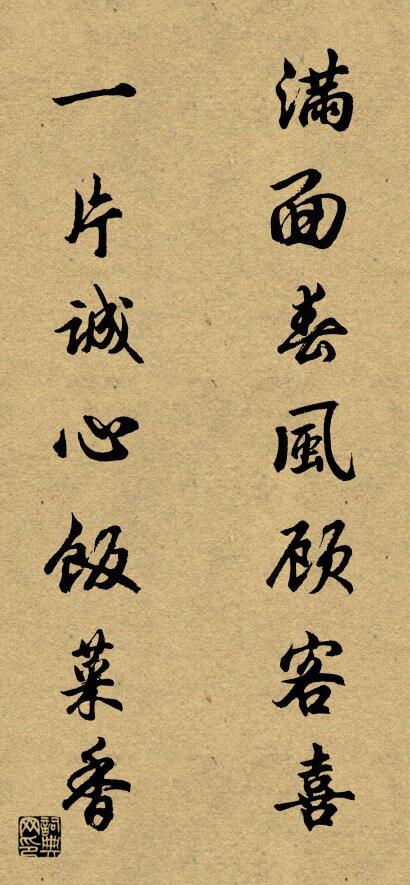 满面春風顾客喜
一片誠心飯菜香
詞典网印